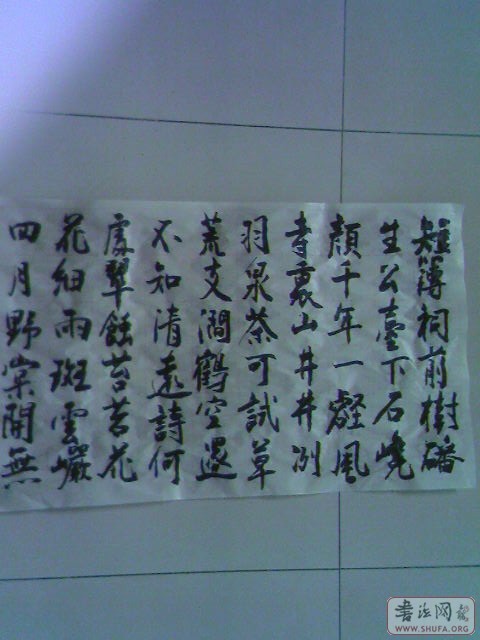 短簿祠前樹磻
生公臺下石嶢
顔千年一壑風
寺裏山井井冽
羽泉茶可試草
荒支澗鶴空還
不知清遠詩何
處翠蝕苔苔花
花細雨斑雲巖
四月野棠開無
書法网
WWW.SHUFA.ORG